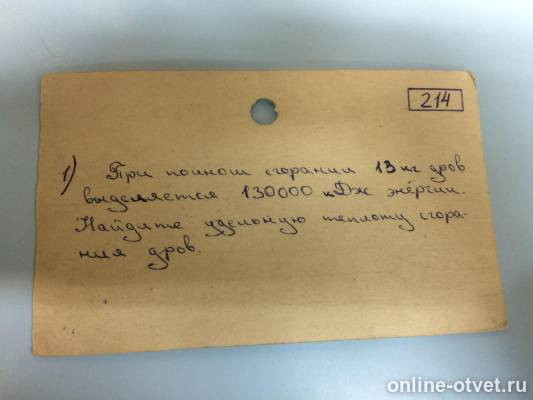 214
1) При полном сгорании 13 кг дров
выделяется 130000 кДж энергии.
Найдите удельную теплоту сгора-
ния дров.
online-otvet.ru